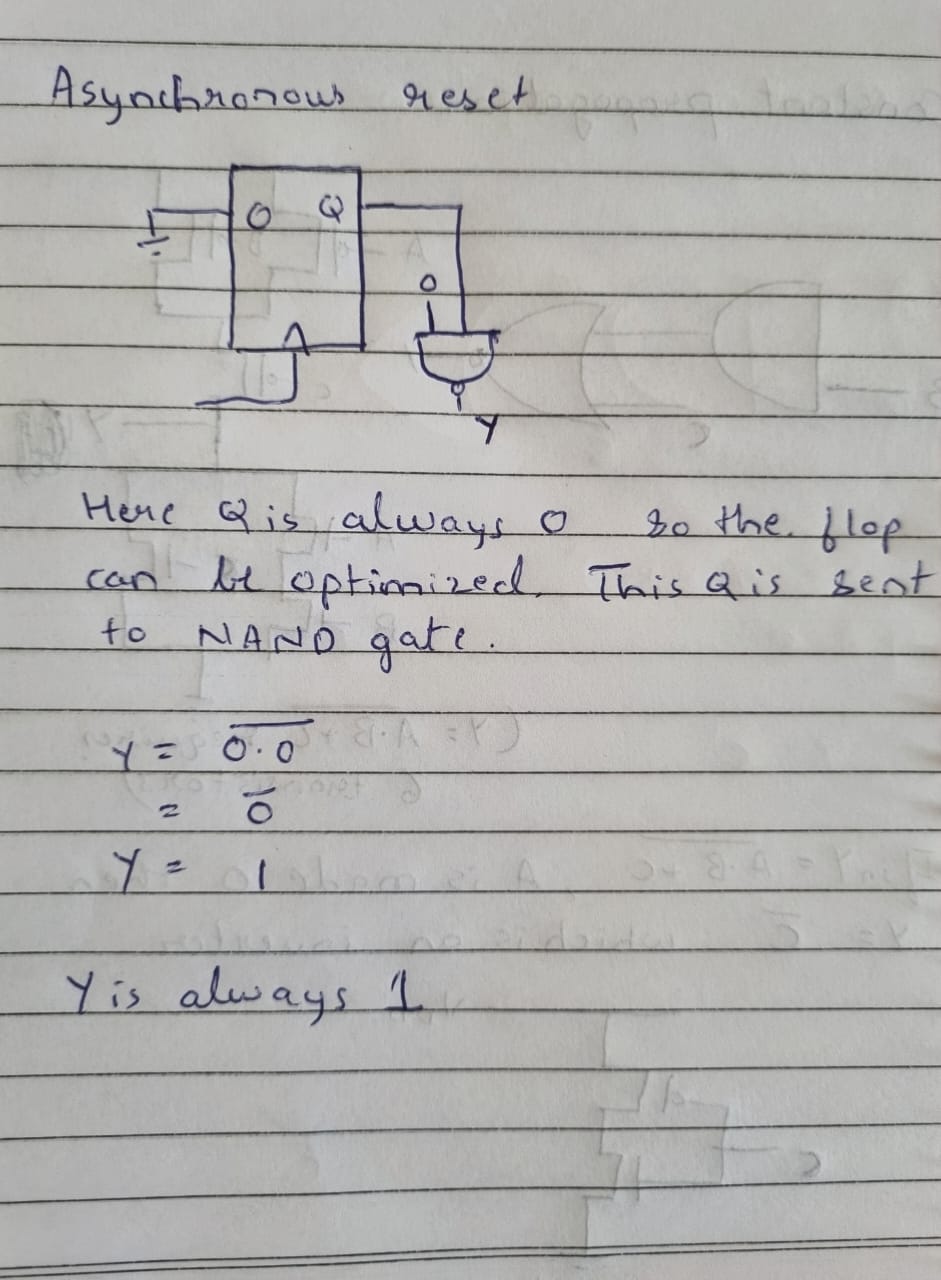 Asynchronous reset
D Q
0
Y
Here Q is always 0 so the flop
can be optimized. This Q is sent
to NAND gate.
Y = \overline{0.0}
= \overline{0}
Y = 1
Y is always 1